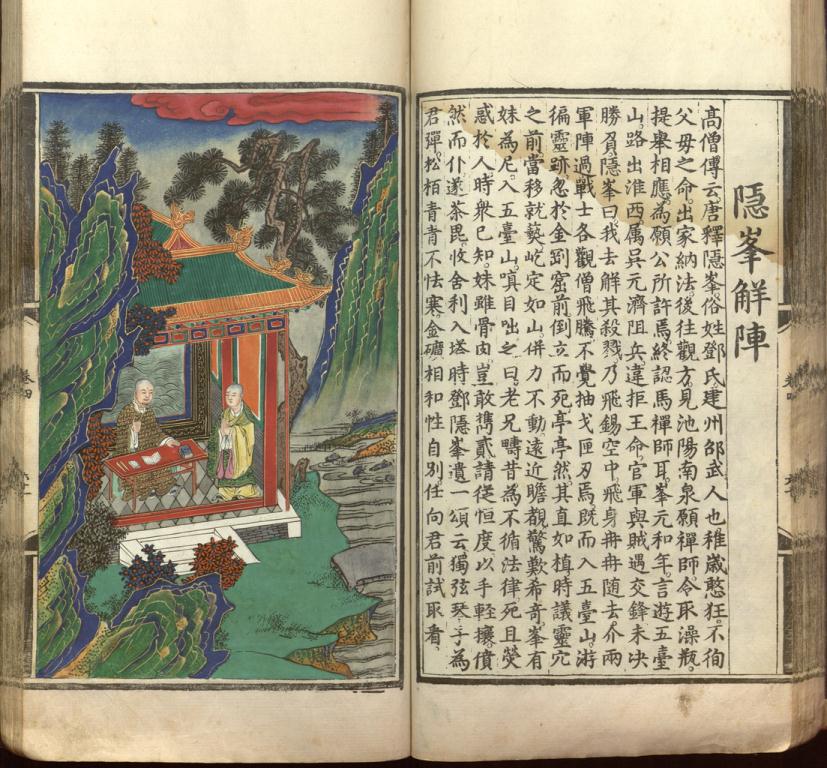 隱峯解陣
髙僧傳云唐釋隱峯俗姓鄧氏建州邵武人也稚歲憨狂不徇
父母之命出家納法後往觀方見池陽南泉願禪師令取澡瓶
提舉相應為願公所許焉終認馬禪師耳峯元和年言遊五臺
山路出淮西属吳元濟阻兵違拒王命官軍與賊遇交鋒未决
勝負隱峯曰我去解其殺戮乃飛錫空中飛身冉冉随去介兩
軍陣過戰士各觀僧飛騰不覺抽戈匣刃焉既而入五臺山游
徧靈跡忽於金剛窟前倒立而死亭亭然其直如植時議靈穴
之前當移就爇屹定如山併力不動遠近瞻覩驚歎希奇峯有
妹為尼入五臺山嗔目咄之曰老兄疇昔為不循法律死且熒
惑於人時衆已知妹雖骨肉豈敢攜貳請從恒度以手輕攘僨
然而仆遂茶毘收舍利入塔時鄧隱峯遺一頌云獨弦琴子為
君彈松栢青青不怯寒金礦相和性自別任向君前試取看
卷四
卷四